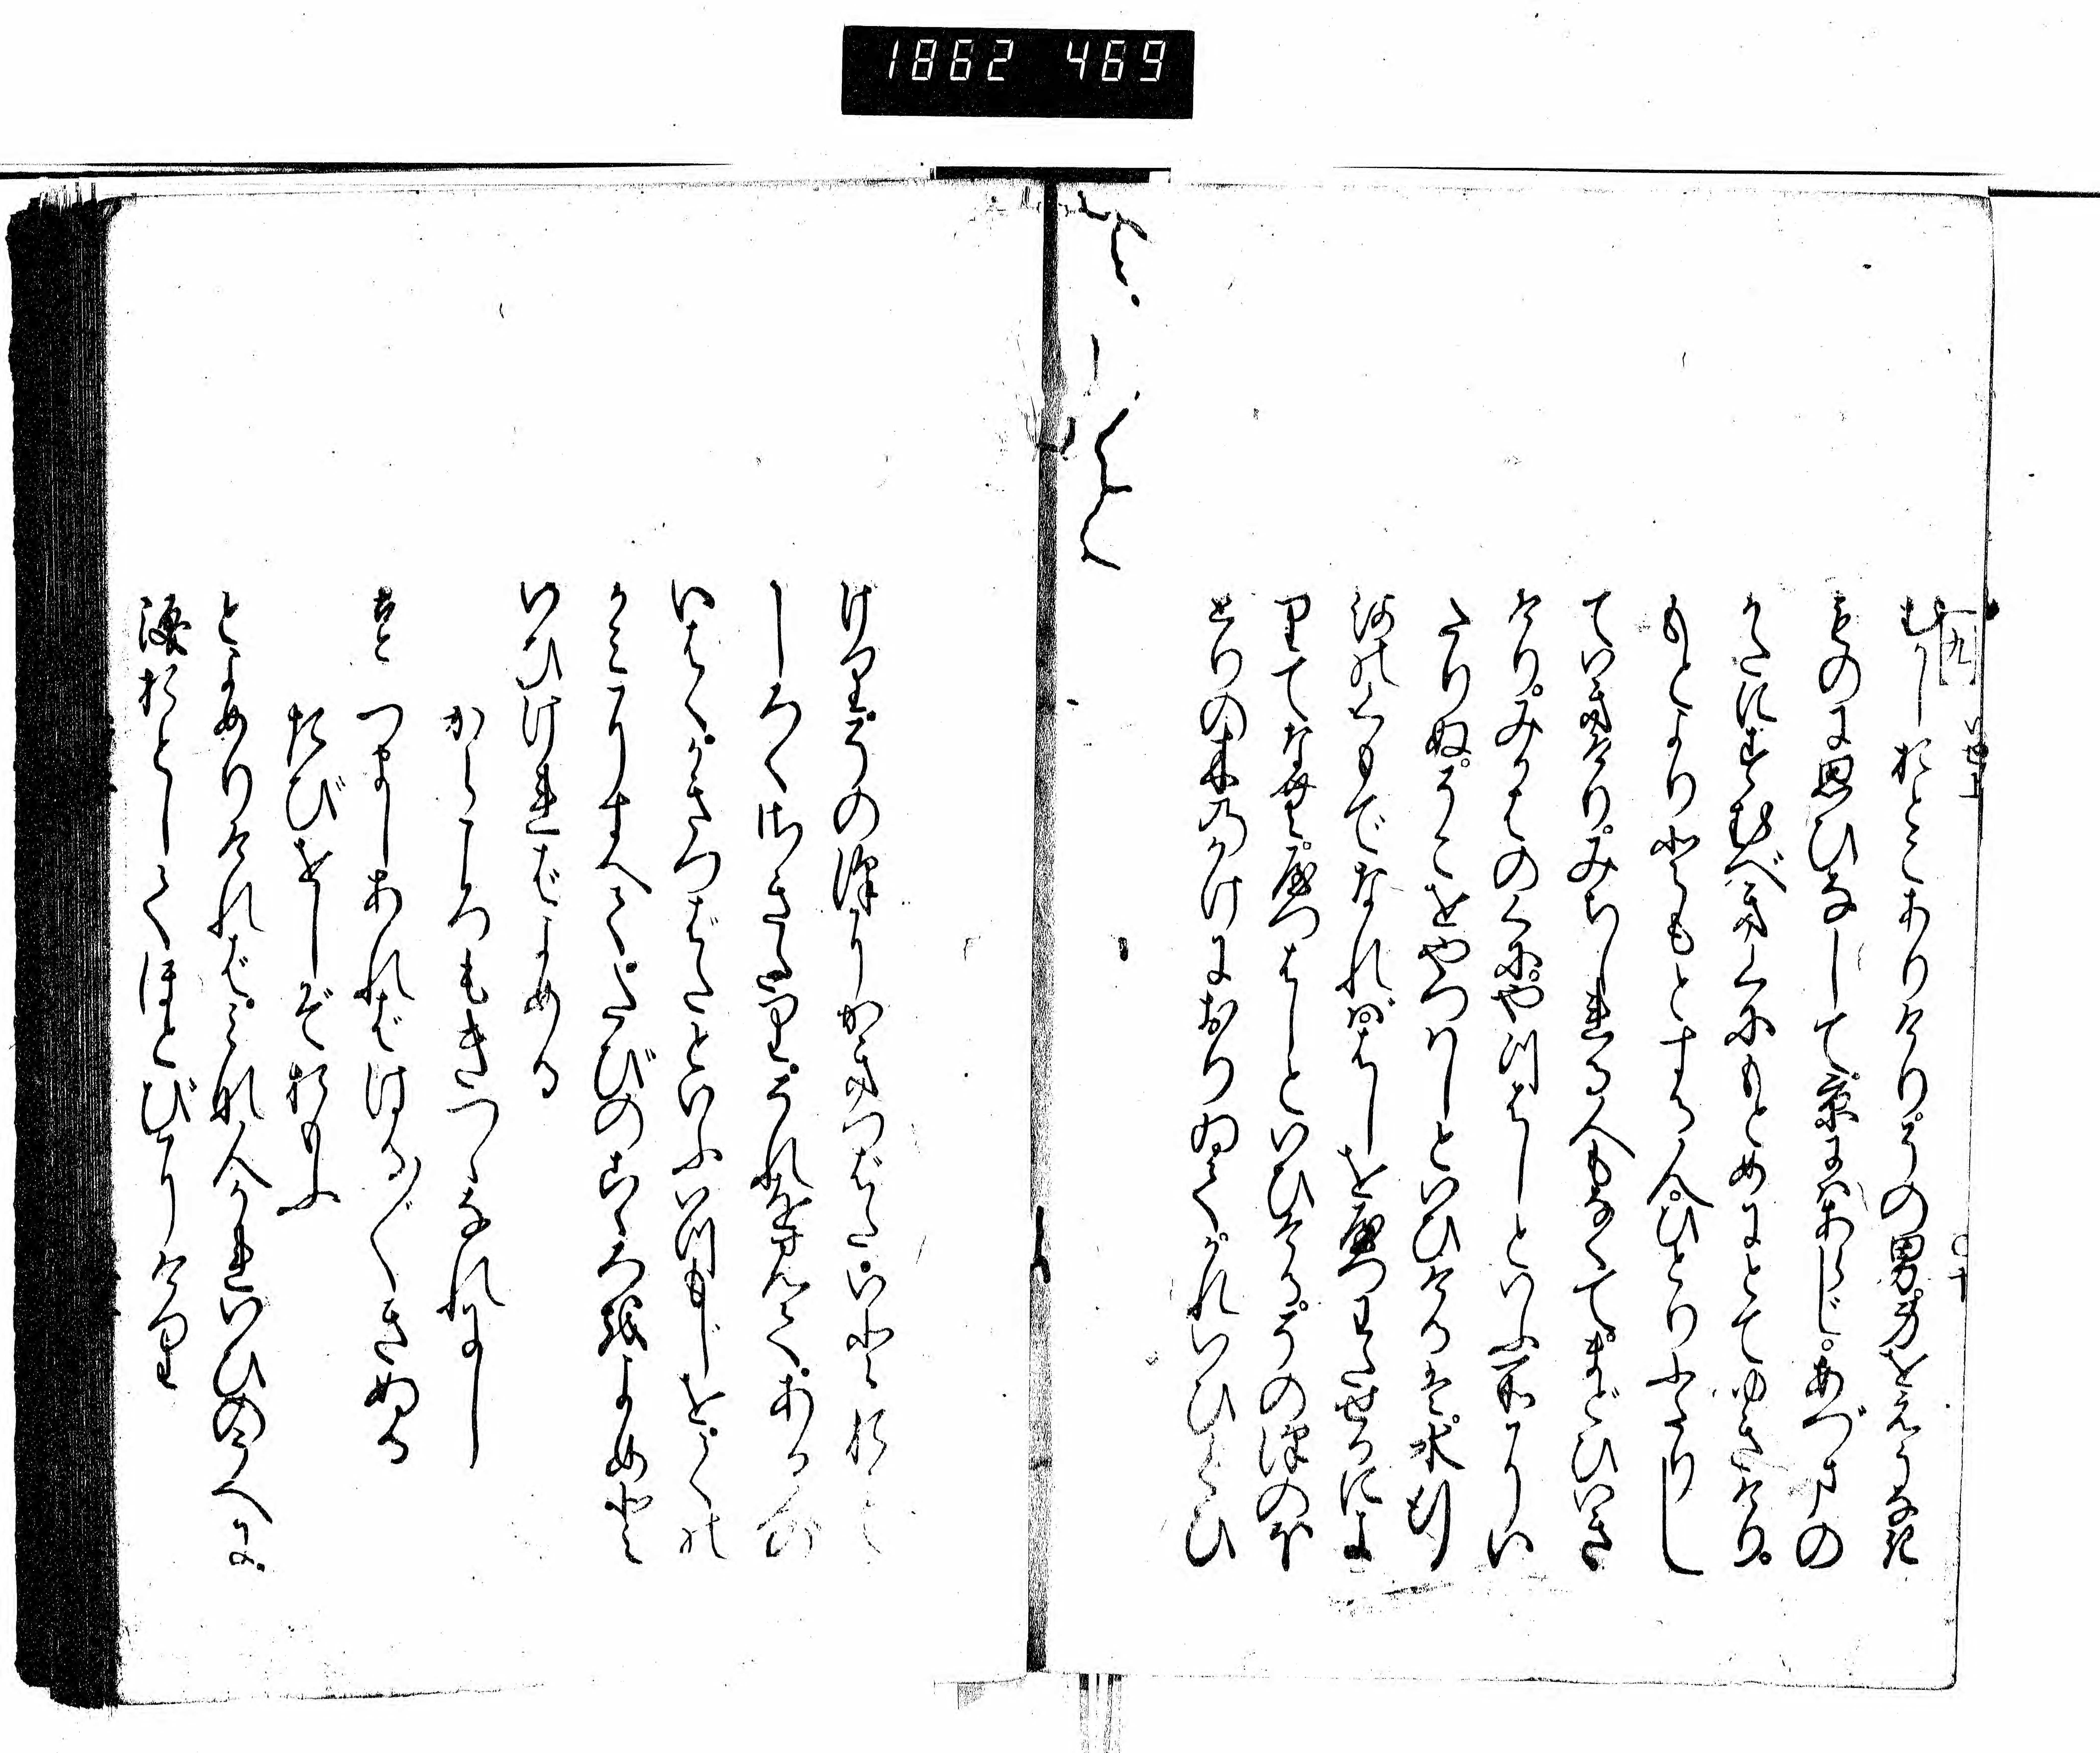 1862 469
むかしおとこありけり。その男。身をえうなき
ものに思ひなして。京にはあらじ。あづまの
かたにすむべきくにもとめにとてゆきけり。
もとより友とする人。ひとりふたりし
ていきけり。みちしれる人もなくて。まどひいき
けり。みかはのくに。や川はしといふ所にい
たりぬ。そこをやつはしといひけるは。水行
河のくもでなれば。はしを八つわたせるによ
りてなむ。八つはしといひける。その沢のほ
とりの木のかけにおりゐて。かれいひくひ
けり。その沢にかきつばた。いとおも
しろくさきたり。それを見て。ある人の
いはく。かきつばたといふいつもじを。くの
かみにすへて。たびのこゝろをよめと
いひければよめる
からころもきつゝなれにし
つましあればはる〴〵きぬる
たびをしぞおもふ
とよめりければ。みな人かれいひのうへに。
涙おとしてほとびにけり